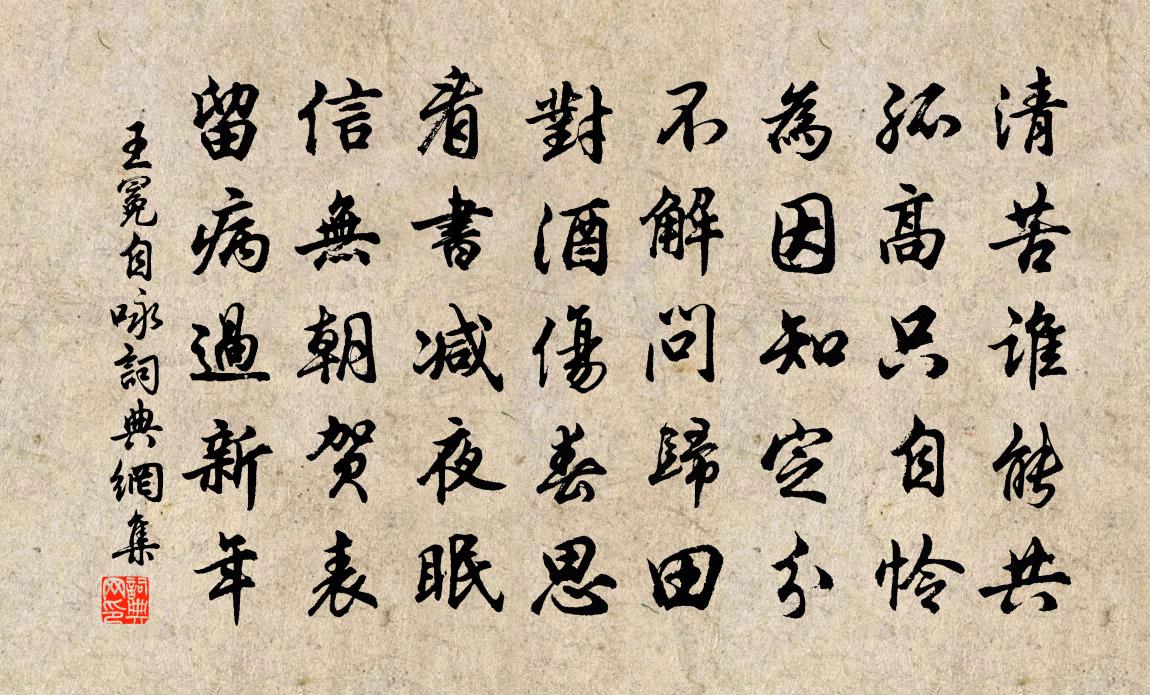 清苦誰能共
孤高只自怜
為因知定分
不解問歸田
對酒傷春思
看書減夜眠
信無朝賀表
留病過新年
王冕自咏詞典網集
詞典网印